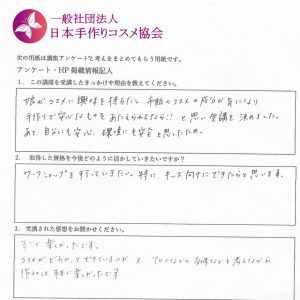 一般社団法人
日本手作りコスメ協会
次の用紙は講座アンケートで考えをまとめてもらう用紙です。
アンケート・HP 掲載情報記入
1. この講座を受講したきっかけや理由を教えてください。
娘がコスメに興味を持ちだし、市販のコスメの成分が気になり
手作りで安心なものをあたえられるなら!!と思い受講を決めました。
あと、自分にも安心、環境にも安全と思ったため。
2. 取得した資格を今後どのように活かしていきたいですか?
ワークショップを行っていきたい。特に、キッズ向けにできたらと思います。
3. 受講された感想をお聞かせください。
すごく楽しかったです。
コスメがどうやってできているのか
作るのは 楽しかったです